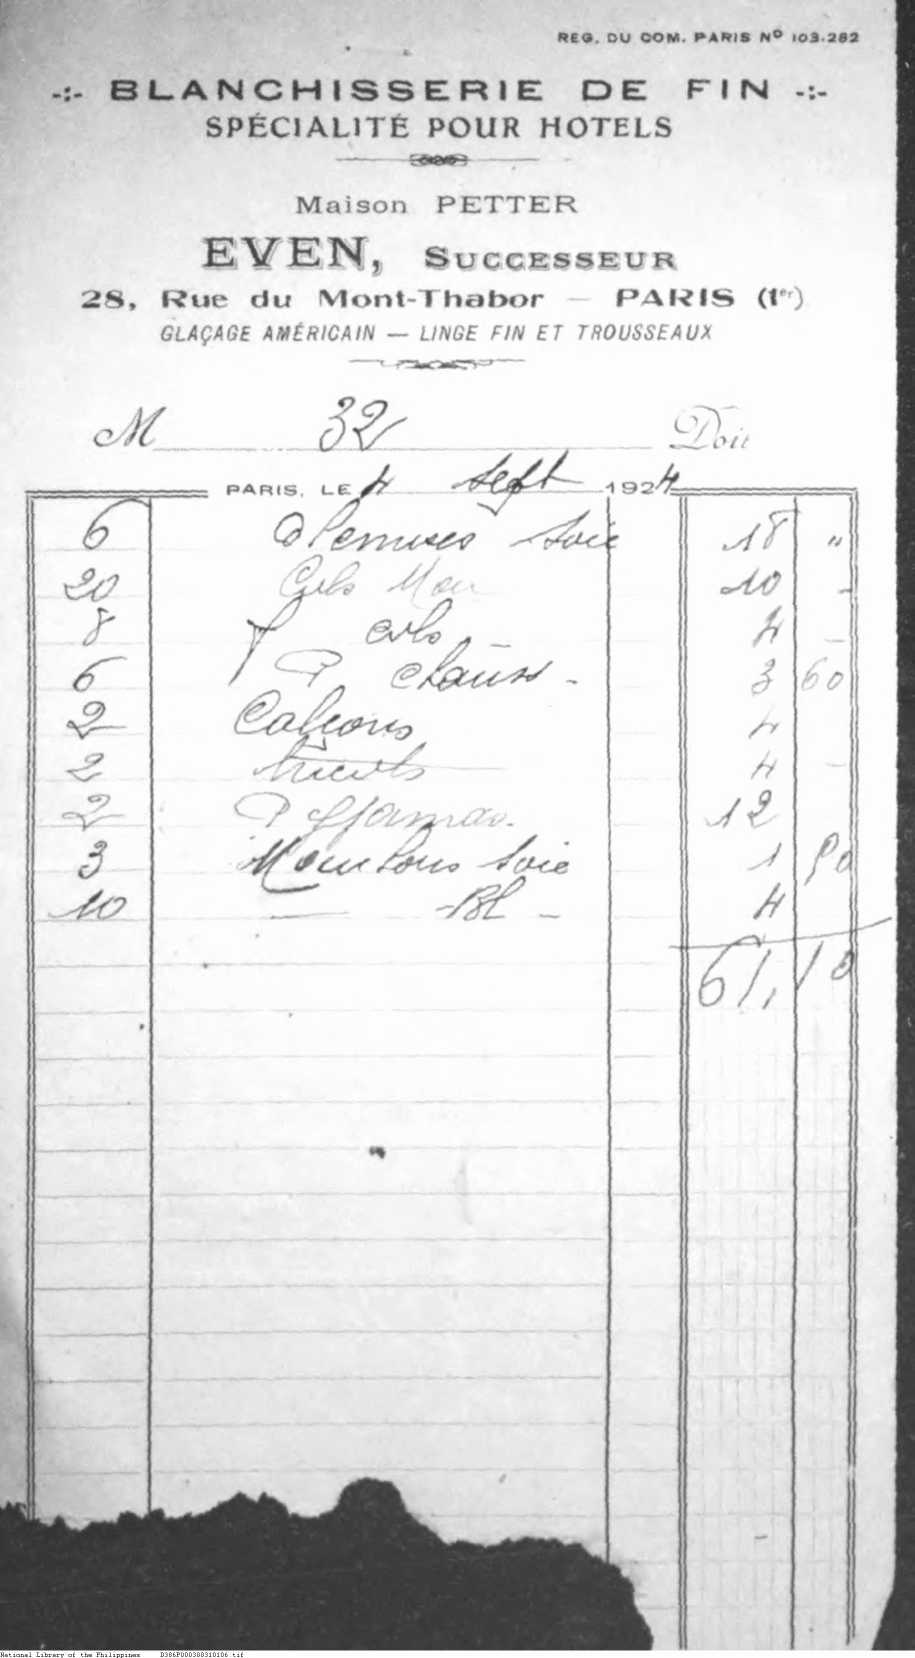 REG. DU COM. PARIS Nº 103.282
-:- BLANCHISSERIE DE FIN -:-
SPÉCIALITÉ POUR HOTELS
Maison PETTER
EVEN, SUCCESSEUR
28, Rue du Mont-Thabor — PARIS (1er)
GLAÇAGE AMÉRICAIN — LINGE FIN ET TROUSSEAUX
M 32 Doit
PARIS, LE 4 Sept 1924
6 Chemises Soie 18 "
20 Cols Mou 10 -
8 f cols 4 -
6 P chauss - 3 60
2 Caleçons 4
2 tricots 4 -
2 Pyjamas. 12
3 Mouchoirs Soie 1 50
10 — Bl - 4
61,10
National Library of the Philippines D386P000388310106.tif